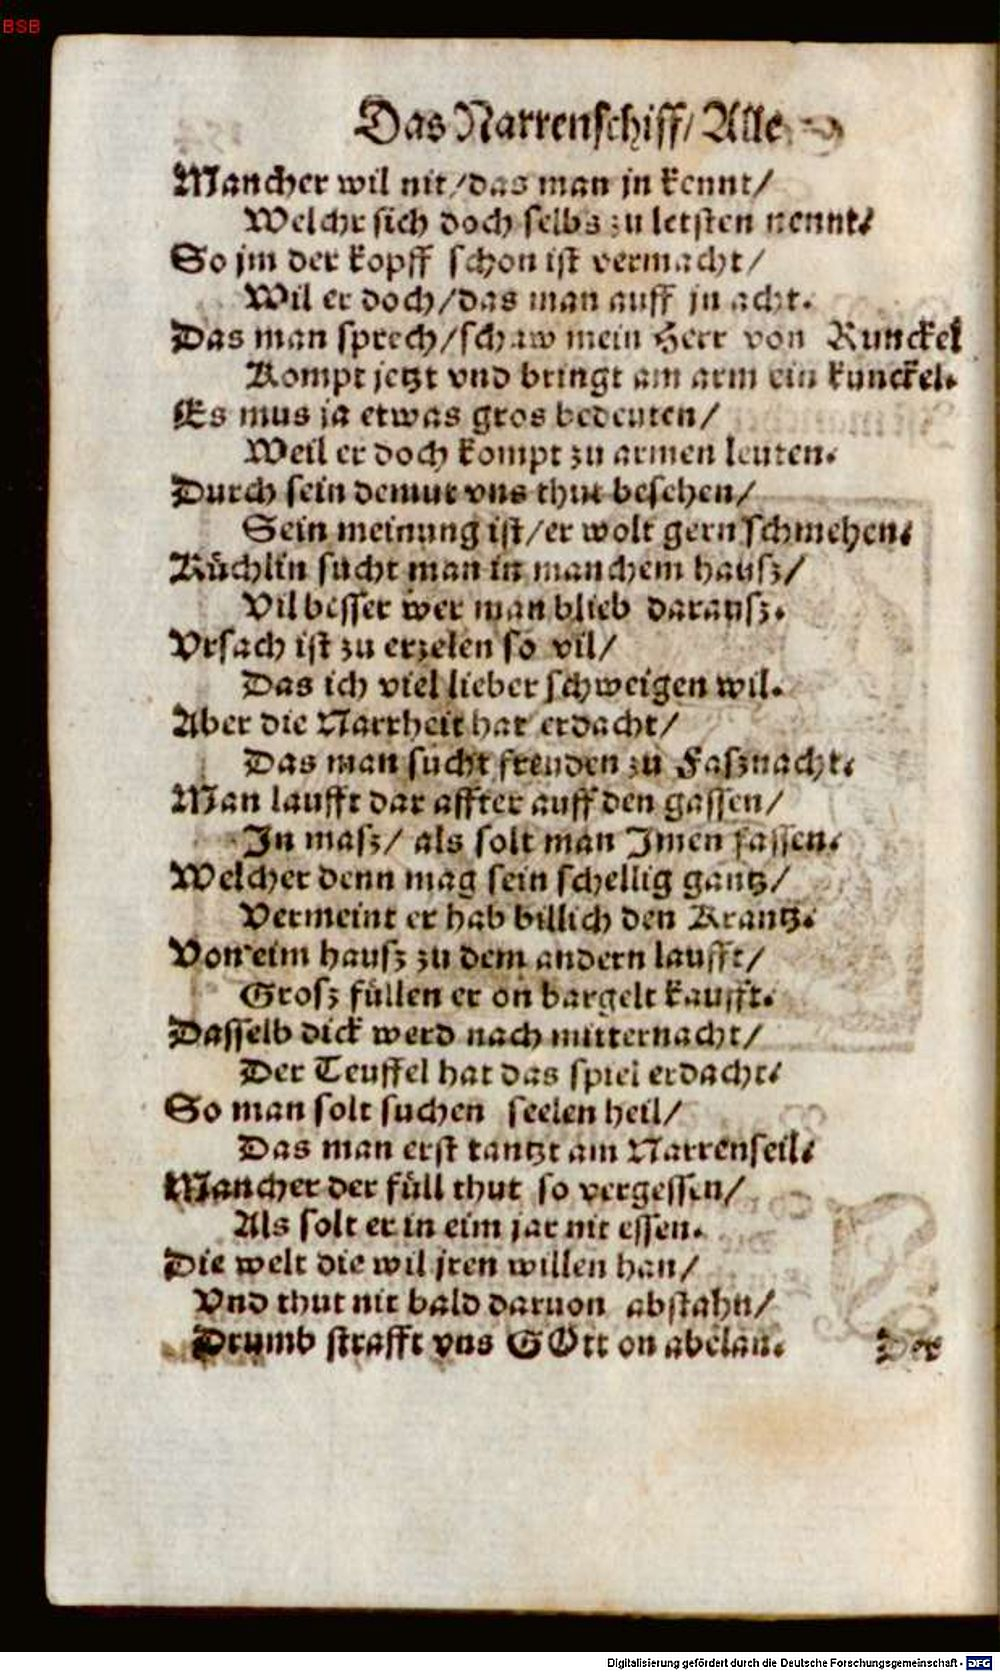 BSB
Das Narrenschiff/ Alle
Mancher wil nit/das man jn kennt/
Welchr sich doch selbs zu letsten nennt.
So jm der kopff schon ist vermacht/
Wil er doch/das man auff jn acht.
Das man sprech/schaw mein Herr von Runckel
Kompt jetzt vnd bringt am arm ein kunckel.
Es mus ja etwas gros bedeuten/
Weil er doch kompt zu armen leuten.
Durch sein demut vns thut besehen/
Sein meinung ist/er wolt gern schmehen.
Küchlin sucht man in manchem hausz/
Vil besser wer man blieb darausz.
Vrsach ist zu erzelen so vil/
Das ich viel lieber schweigen wil.
Aber die Narrheit hat erdacht/
Das man sucht freuden zu Fasznacht.
Man laufft dar affter auff den gassen/
In masz/ als solt man Imen fassen.
Welcher denn mag sein schellig gantz/
Vermeint er hab billich den Krantz.
Von eim hausz zu dem andern laufft/
Grosz füllen er on bargelt kaufft.
Dasselb dick werd nach mitternacht/
Der Teuffel hat das spiel erdacht.
So man solt suchen seelen heil/
Das man erst tantzt am Narrenseil.
Mancher der füll thut so vergessen/
Als solt er in eim jar nit essen.
Die welt die wil jren willen han/
Vnd thut nit bald daruon abstahn/
Drumb strafft vns GOtt on abelan.
Der
Digitalisierung gefördert durch die Deutsche Forschungsgemeinschaft - DFG